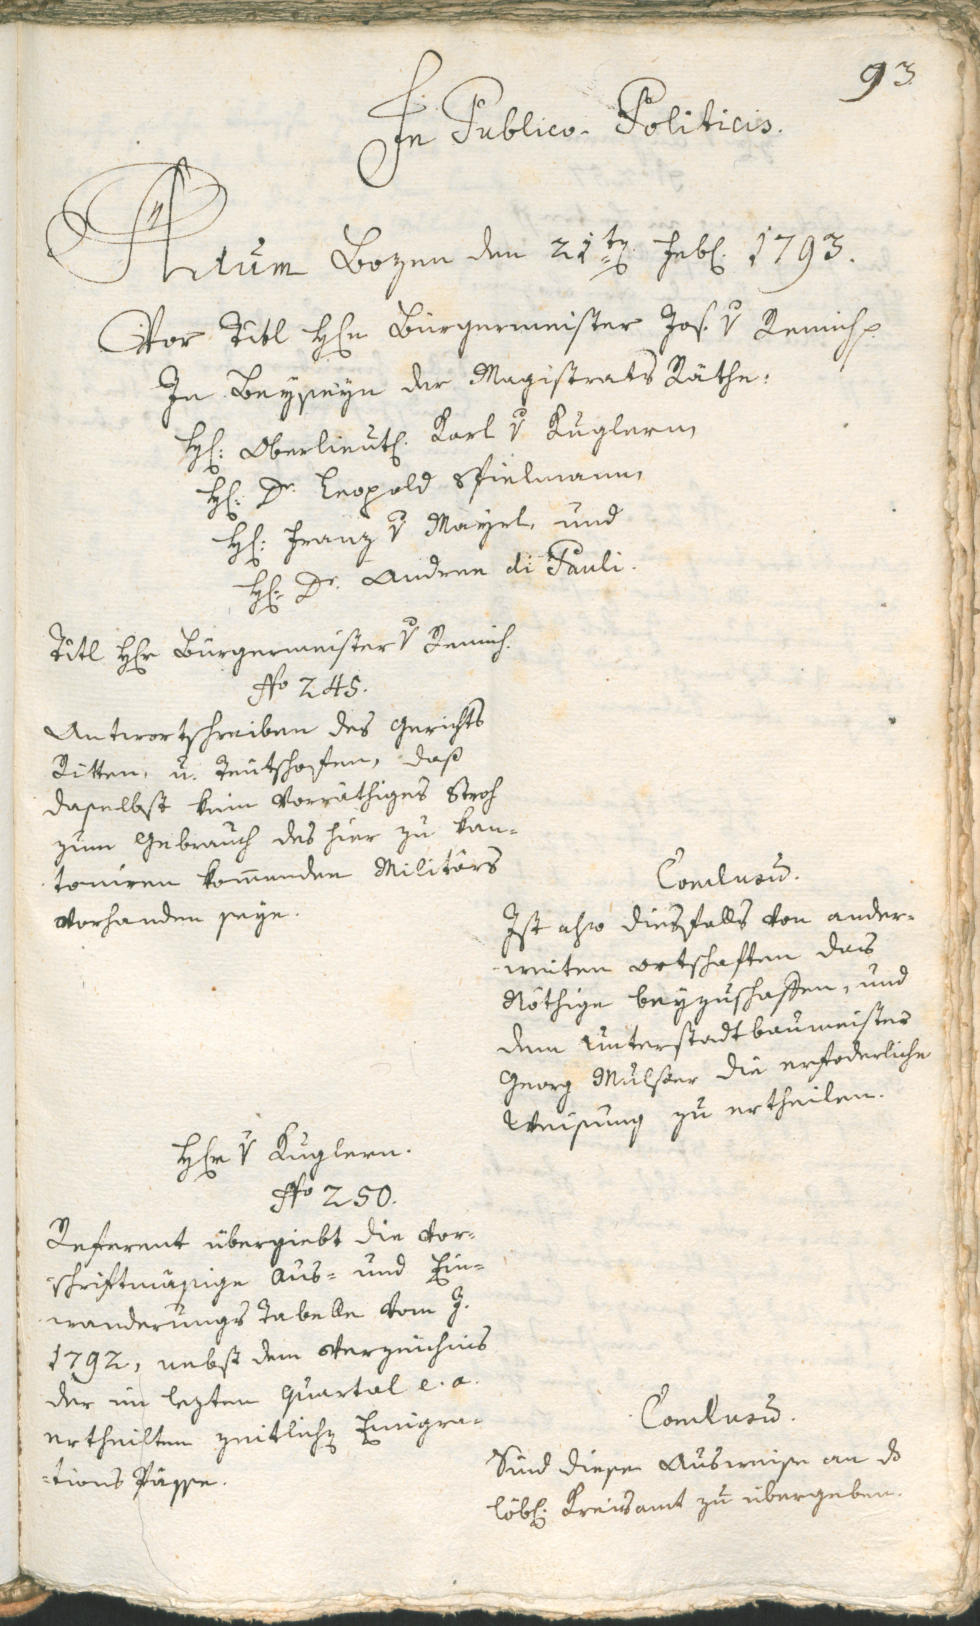 93.
In Publico-Politicis.
Actum Bozen den 21t. Febl. 1793.
Vor Titl Hln Bürgermeister Jos. v Remich p.
In Beyseyn der Magistrats Räthe:
Hl: Oberlieutl. Karl v Kuglern,
Hl: Dr. Leopold Spielmann,
Hl: Franz v Mayrl, und
Hl: Dr. Andree di Pauli.
Titl Hlr Bürgermeister v Remich.
No 245.
Antwortschreiben des Gerichts
Ritten, u. Teutschofen, daß
daselbst kein vorräthiges Stroh
zum Gebrauch des hier zu kan-
toniren kommenden Militärs
vorhanden seye.
Conclusu.
Ist also diesfalls von ander-
weiten Ortschaften das
Nöthige beyzuschaffen, und
dem Unterstadtbaumeister
Georg Mulser die erfoderliche
Weisung zu ertheilen.
Hlr v Kuglern.
No 250.
Referent übergiebt die vor-
schriftmäsige Aus- und Ein-
wanderungs Tabelle vom J.
1792, nebst dem Verzeichnis
der im lezten Quartal e. a.
ertheilten zeitlichen Emigra-
-tions Pässe.
Conclusu.
Sind diese Ausweise an ds
löbl. Kreisamt zu übergeben.